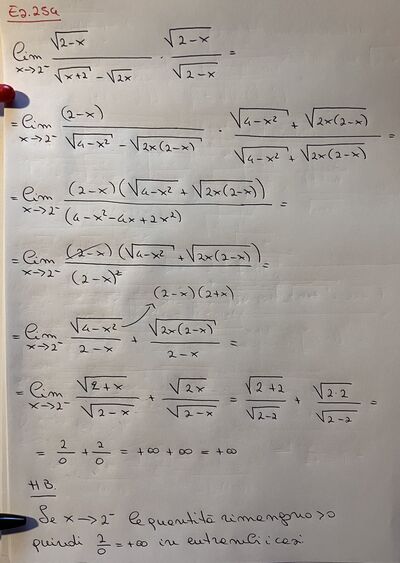 E2.25a
lim x→2⁻ √(2-x) / (√(x+2) - √(2x)) · √(2-x) / √(2-x) =
= lim x→2⁻ (2-x) / (√(4-x²) - √(2x(2-x))) · (√(4-x²) + √(2x(2-x))) / (√(4-x²) + √(2x(2-x))) =
= lim x→2⁻ (2-x)(√(4-x²) + √(2x(2-x))) / (4-x²-4x+2x²) =
= lim x→2⁻ (2-x)(√(4-x²) + √(2x(2-x))) / (2-x)² =
(2-x)(2+x)
= lim x→2⁻ √(4-x²) / (2-x) + √(2x(2-x)) / (2-x) =
= lim x→2⁻ √(2+x) / √(2-x) + √(2x) / √(2-x) = √(2+2) / √(2-2) + √(2·2) / √(2-2) =
= 2/0 + 2/0 = +∞ +∞ = +∞
NB.
Se x→2⁻ le quantità rimangono >0
quindi 2/0 = +∞ in entrambi i casi